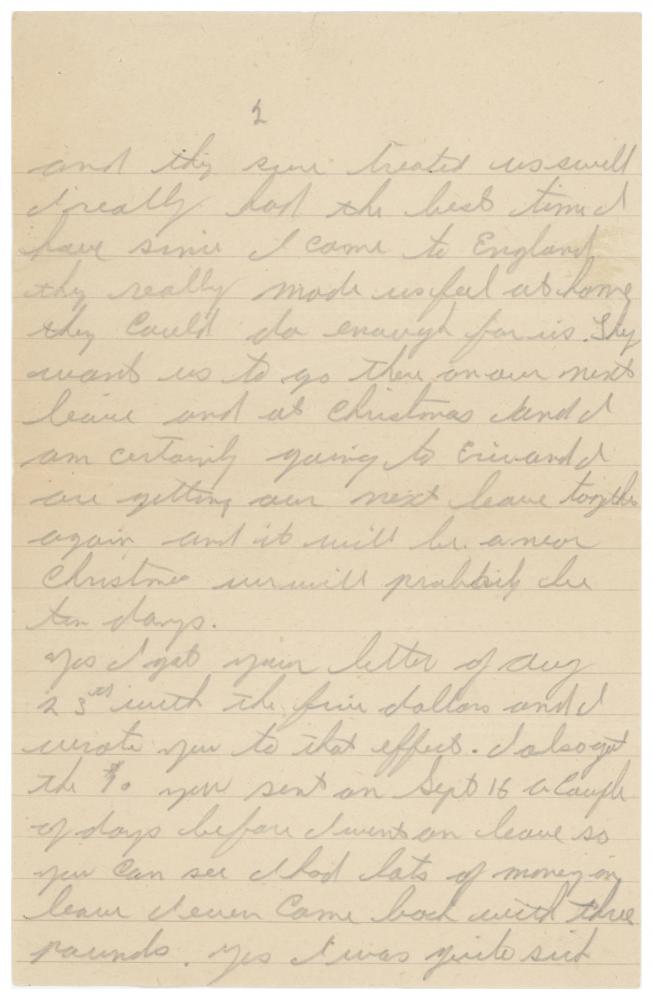 2
and they sure treated us swell
I really had the best time I
have since I came to England
they really made us feel at home
they could do enough for us. They
want us to go there on our next
leave and at Christmas and I
am certainly going to and I
are getting our next leave together
again and it will be near
Christmas we will probably be
ten days.
Yes I got your letter of Aug
23rd with the five dollars and I
wrote you to that effect. I also got
the you sent on Sept 16 a couple
of days before I went on leave so
you can see I had lots of money on
leave I even came back with three
pounds. Yes I was quite sick